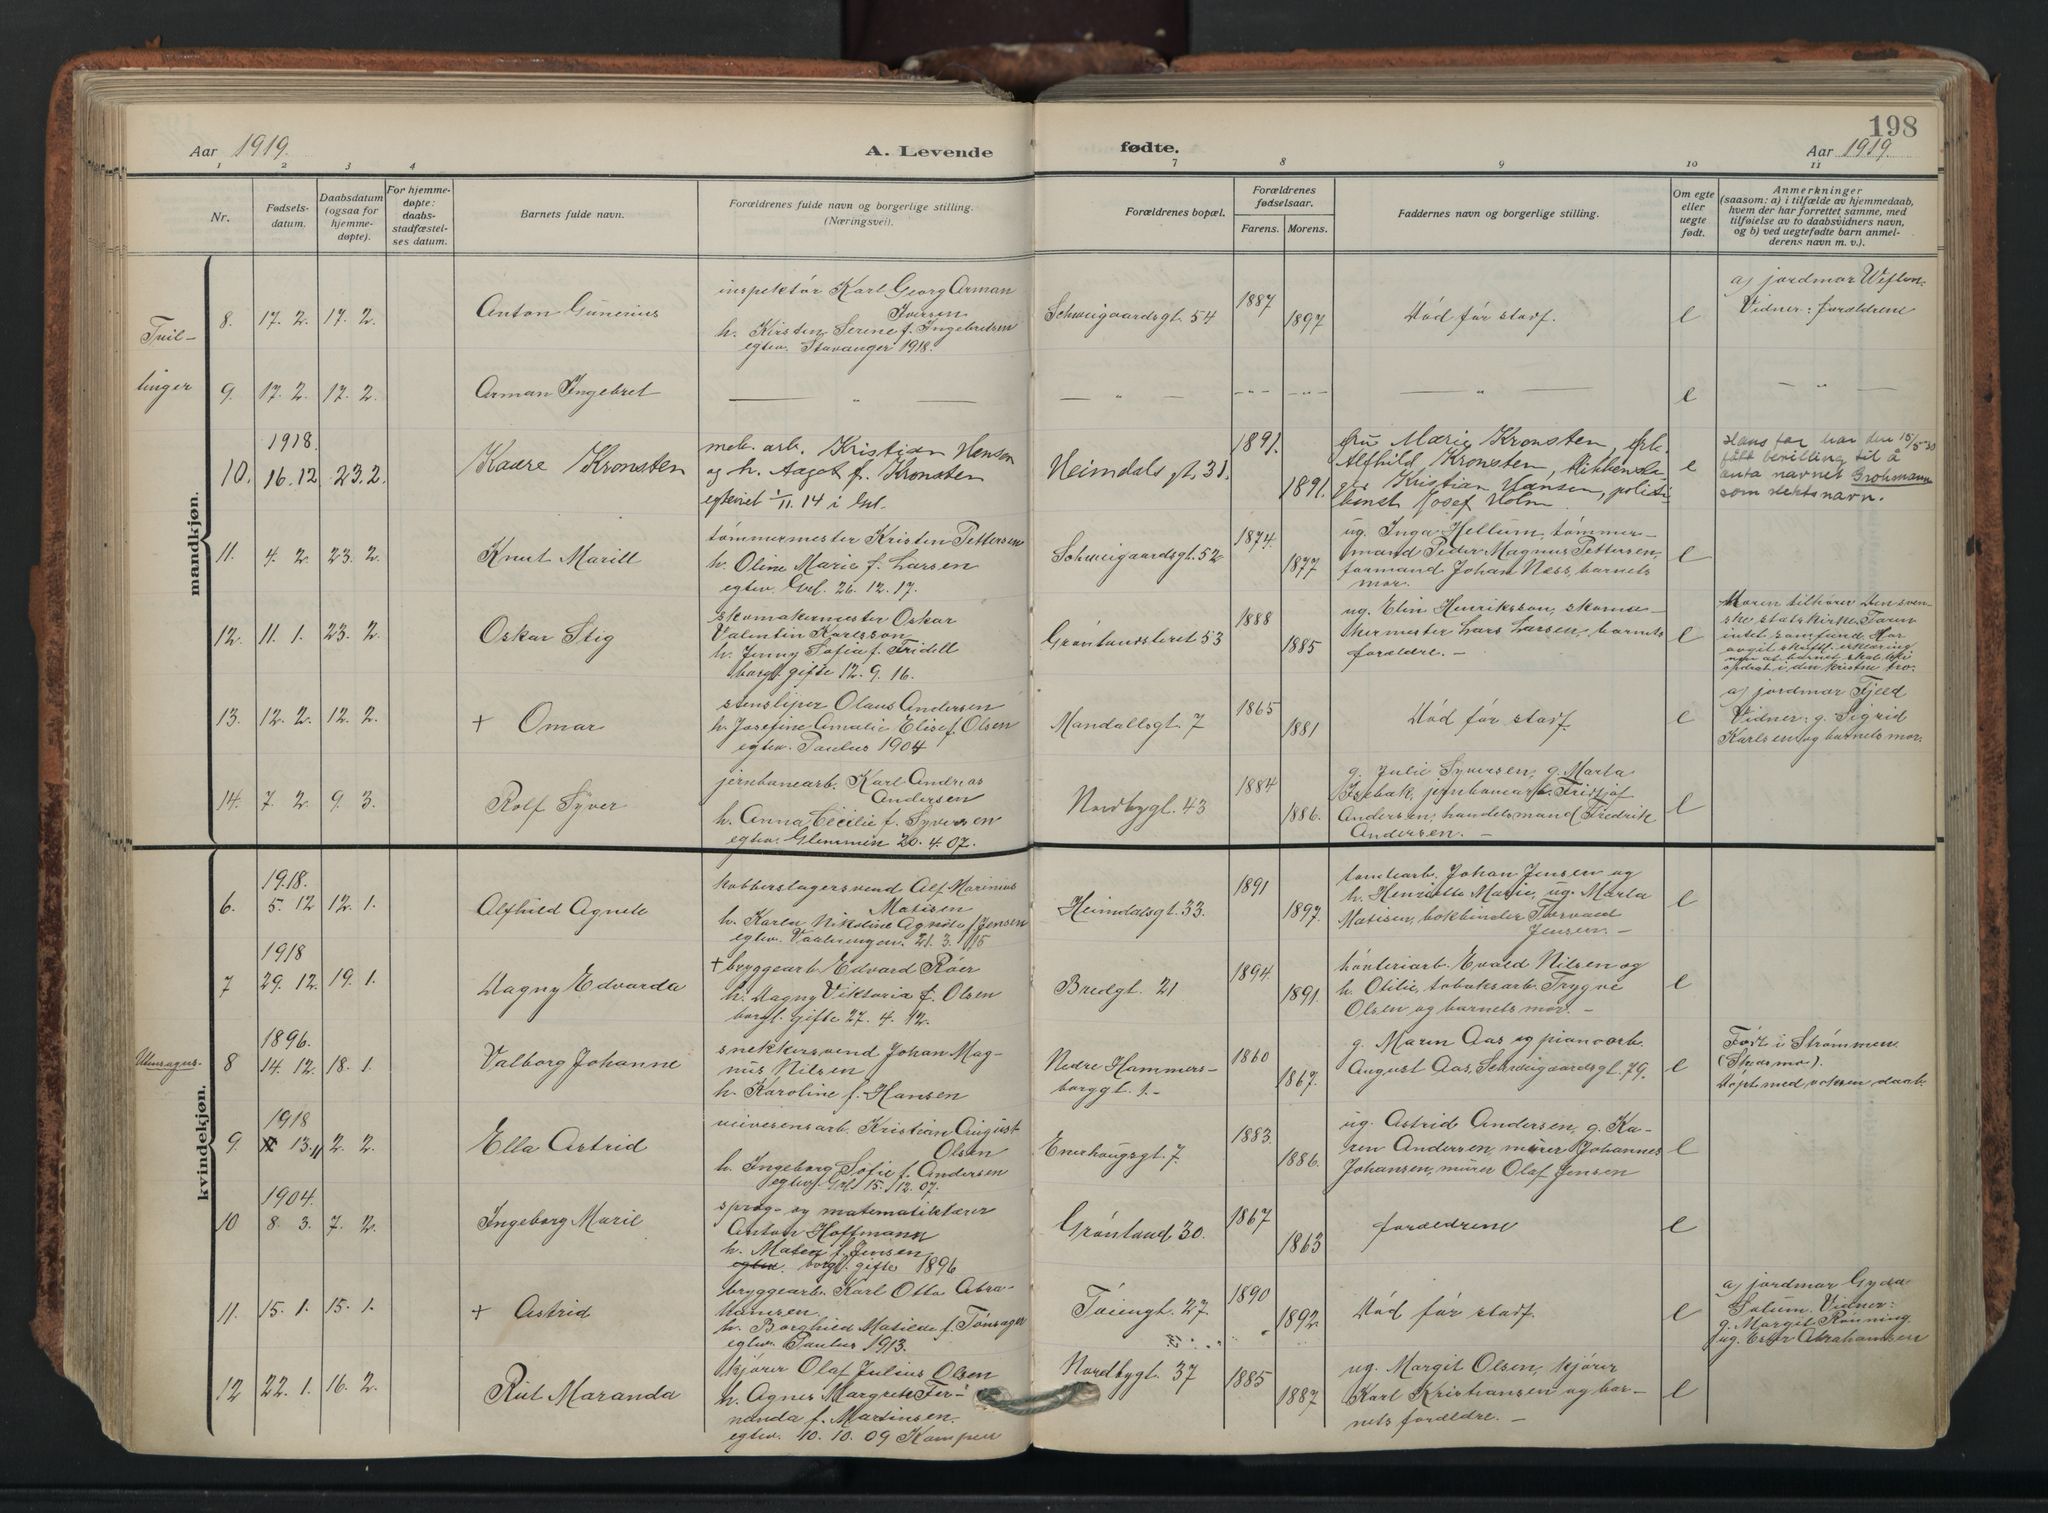 198
Aar 1919.
A. Levende
fødte.
Aar 1919.
1 2 3 4 7 8 9 10 11
Nr.
Fødsels-
datum.
Daabsdatum
(ogsaa for
hjemme-
døpte).
For hjemme-
døpte:
daabs-
stadfæstel-
ses datum.
Barnets fulde navn.
Forældrenes fulde navn og borgerlige stilling.
(Næringsvei).
Forældrenes bopæl.
Forældrenes
fødselsaar.
Farens. Morens.
Faddernes navn og borgerlige stilling.
Om egte
eller
uegte
født.
Anmerkninger
(saasom: a) i tilfælde av hjemmedaab,
hvem der har forrettet samme, med
tilføielse av to daabsvidners navn,
og b) ved uegtefødte barn anmel-
derens navn m. v.).
mandkjøn.
Tvil-
linger
8. 17. 2. 17. 2.
Anton Gunerius
inspektør Karl Georg Arman
Iversen
h. Kirsten Serene f. Ingebretsen
egtev. Stavanger 1918.
Schweigaardsgt. 54
1887
1897
Død før stadf.
e
a) jordmor
Vidner: forældrene
9. 17. 2. 17. 2.
Arman Ingebret
— „ —
— „ —
e
— „ —
1918.
10. 16.12 23.2.
Kaare Kronsten
mek. arb. Kristian Hansen
og h. Aagot f. Kronsten
egteviet 1/11. 14 i Grl.
Heimdals gt. 31.
1891.
1891.
fru Marie Kronsten, frk.
Alfhild Kronsten,
Kristian Hansen, politi-
betjent Josef Holm
e
Hans far har den 15/5-30
fått bevilling til å
anta navnet Grohmann
som slektsnavn.
11. 4. 2. 23. 2.
Knut Marill
tømmermester Kristen Pettersen
h. Oline Marie f. Larsen
egtev. Grl. 26. 12. 17.
Schweigaardsgt. 52
1874.
1877
ug. Inga Hellum, tømmer-
mand Peder Magnus Pettersen,
formand Johan Næss, barnets
mor.
e
12. 11. 1. 23. 2.
Oskar Stig
skomakermester Oskar
Valentin Karlsson
h. Jenny Sofia f. Fridell
borgl. gifte 12. 9. 16.
Grønlandsleret 53
1888
1885
ug. Elin Henriksson, skoma-
kermester Lars Larsen, barnets
forældre. —
e
Moren tilhører Den sven-
ske statskirke. Faren
intet samfund. Har
avgit skriftl. erklæring
om at barnet skal bli
opdrat i den kristne tro.
13. 12. 2. 12. 2.
+ Omar
stensliper Olaus Andersen
h. Josefine Amalie Elise f. Olsen
egtev. Paulus 1904
Mandallsgt. 7
1865
1881
Død før stadf.
e
a) jordmor Fjeld
Vidner: g. Sigrid
Karlsen og barnets mor.
14. 7. 2. 9. 3.
Rolf Syver
jernbanearb. Karl Andreas
Andersen
h. Anna Cecilie f. Syversen
egtev. Glemmen 20. 4. 07.
Nordbygt. 43
1884
1886.
g. Julie Syversen, g. Marta
Isebak, jernbanearb. Fridtjof
Andersen, handelsmand Fredrik
Andersen. —
e
kvindekjøn.
1918.
6. 5. 12 12. 1.
Alfhild Agnete
kobberslagersvend Alf Marinius
Matisen
h. Karen Nikoline Agnete f. Jensen
egtev. Vaalerengen. 21. 3. 15
Heimdalsgt. 33.
1891
1897.
tomtearb. Johan Jensen og
h. Henriette Marie, ug. Marta
Matisen, bokbinder Torvald
Jensen. —
e
1918
7 29. 12. 19. 1.
Dagny Edvarda
+ bryggearb. Edvard Røer
h. Dagny Viktoria f. Olsen
borgl. gifte 27. 4. 12.
Bredgt. 21
1894.
1891.
Evald Nilsen og
h. Otilie, tobaksarb. Trygve
Olsen og barnets mor. —
e
1896.
8 14. 12. 18. 1.
Valborg Johanne
snekkersvend Johan Mag-
nus Nilsen
h. Karoline f. Hansen
Nedre Hammers-
borggt. 1. —
1860
1867.
g. Maren Aas og pianoarb.
August Aas, Schweigaardsgt. 79.
e
Født i Strømmen
(Skedsmo).
Døpt med voksen daab.
1918
9 13. 11 2. 2.
Ella Astrid
veivesensarb. Kristian August
Olsen
h. Ingeborg Sofie f. Andersen
egtev. Grl. 15. 12. 07.
Enerhaugsgt. 7.
1883.
1886.
ug. Astrid Andersen, g. Ka-
ren Andersen, murer Johannes
Johansen, murer Olaf Jensen
e
1904.
10 8. 3. 7. 2.
Ingeborg Marie
sprog- og matematiklærer
Anton Hoffmann
h. Matea f. Jensen
egtev. borgl. gifte 1896
Grønland 30.
1867
1863
forældrene
e
11. 15. 1. 15. 1.
+ Astrid
bryggearb. Karl Otto Abra-
hamsen
h. Borghild Matilde f. Tønsager
egtev. Paulus 1913.
Tøiengt. 27
1890
1892
Død før stadf.
e
a) jordmor Gyda
Solum. Vidner:
g. Margit Rønning
ug. Ester Abrahamsen
12 22. 1. 16. 2.
Rut Maranda
kjører Olaf Julius Olsen
h. Agnes Margrete Fer-
nanda f. Martinsen.
egtev. 10. 10. 09 Kampen
Nordbygt. 37
1885
1887
ug. Margit Olsen, kjører
Karl Kristiansen og bar-
nets forældre. —
e